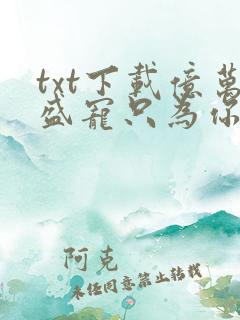 txt下載億萬
盛寵只為你
阿克
未经同意禁止转载